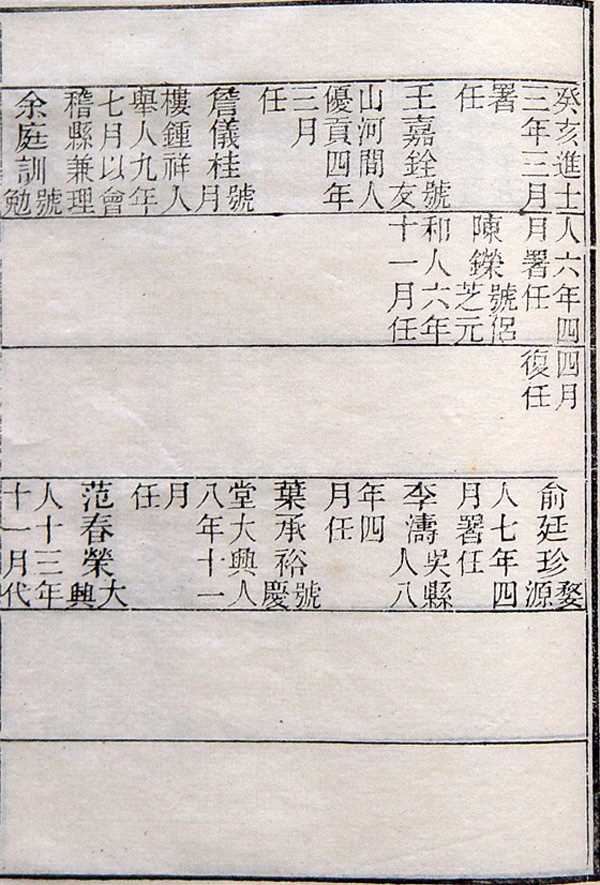 癸亥進士
三年三月
署
任
王嘉銓號
友
山河間人
優貢四年
三月
任
詹儀桂號
月
樓鍾祥人
舉人九年
七月以會
稽縣兼理
余庭訓號
勉
人六年四
月署任
陳鑅號侶
芝元
和人六年
十一月任
四月
復任
俞廷珍婺
源
人七年四
月署任
李濤吳縣
人八
年四
月任
葉承裕號
慶
堂大興人
八年十一
月
任
范春榮大
興
人十三年
十一月代